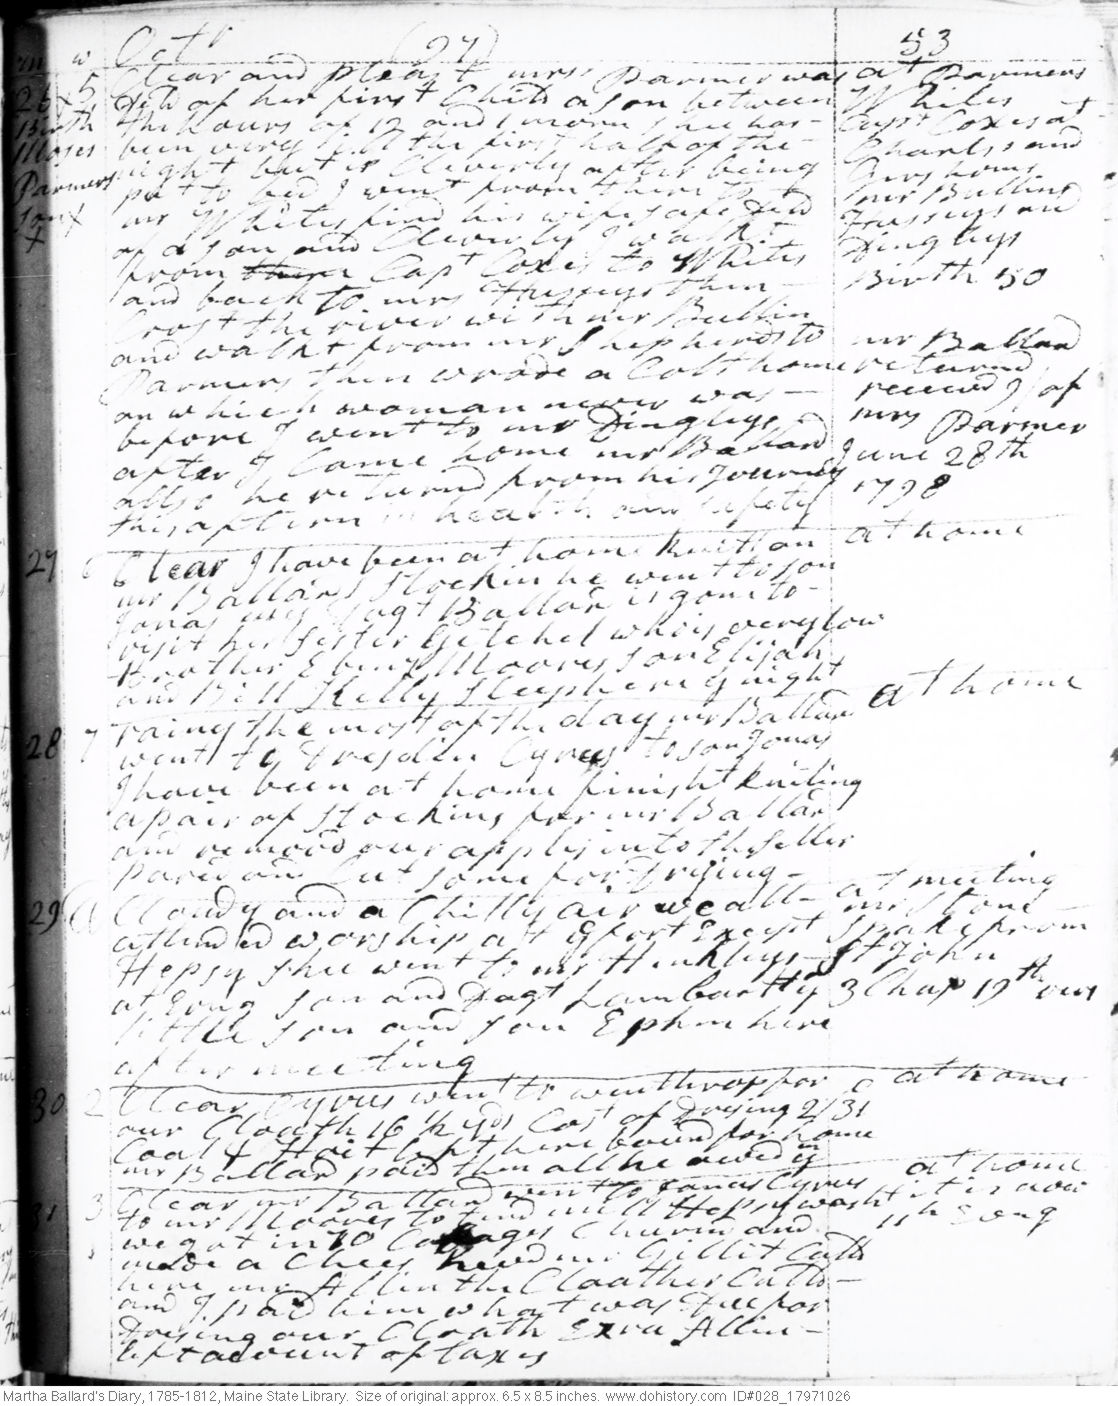 m w Octr (27) 53
26 x 5 Clear and pleast mrss Parmer was at Parmers
Birth Deld of her first Child a son between Whites
Moses the hours of 12 and 1 morn shee has- Capt Coxes at
Parmers been very ill the first half of the- Charlss and
son x night but is Cleverly after being Geirs homs
x put to bed I went from there to mr Bullins
mr Whites find his wife safe Deld Husseys and
of a son and Cleverly I walkt Dingleys
from there Capt Coxes to Whites Birth 50
and back to mrs Husseys then
Crost the river with mr Bullin
and walkt from mr Shepherds to mr Ballard
Parmers then wrode a Colt home returned
on which woman never was- received 9/ of
before I went to mr Dingleys mrs Parmer
after I Came home mr Ballard June 28th
allso he returnd from his Journey 1798
this aftern in health and safety
27 6 Clear I have been at home knitt on at home
mr Ballards Stockin he went to son
Jonas Dagt Ballard is gone to-
visit her sister Getchel who is very low
Brother Ebenzr Moores son Elijah
and Bill Kelly Sleep here ys night
28 7 rainy the most of the day mr Ballard at home
went to Dresden Cyrus to son Jonas
I have been at home finisht knitting
a pair of Stockins for mr Ballard
and removd our apples into the seller
pared and Cut some for Drying-
29 Cloudy and a Chilly air we all- at meeting
attended worship att ys fort Except mr Stone
Hepsy shee went to mr Hinkleys- Spake from
at Evng son and Dagt Lambart ye St John
little son and son Ephm here 3 Chap 19th vers
after meeting
30 2 Clear Cyrus went to winthrop for at home
our Cloath 16 1/2 yds Cost of Dresing 2/31
Coal & Hoit slept here bound for home
mr Ballard paid them all he owed ym
31 3 Clear mr Ballard went to Jonas Cyrus at home
to mr Moores to find mill Hepsy washt it is now
we got in 70 Cabages Churnd and 11 h Evng
made a Chees hewd mr Gillit Calld
here mr Allin the Cloather Calld-
and I paid him what was Due for
Dresing our Cloath Ezra Allin-
left account of taxes
Martha Ballard's Diary, 1785-1812, Maine State Library. Size of original: approx. 6.5 x 8.5 inches. www.dohistory.com ID#028_17971026